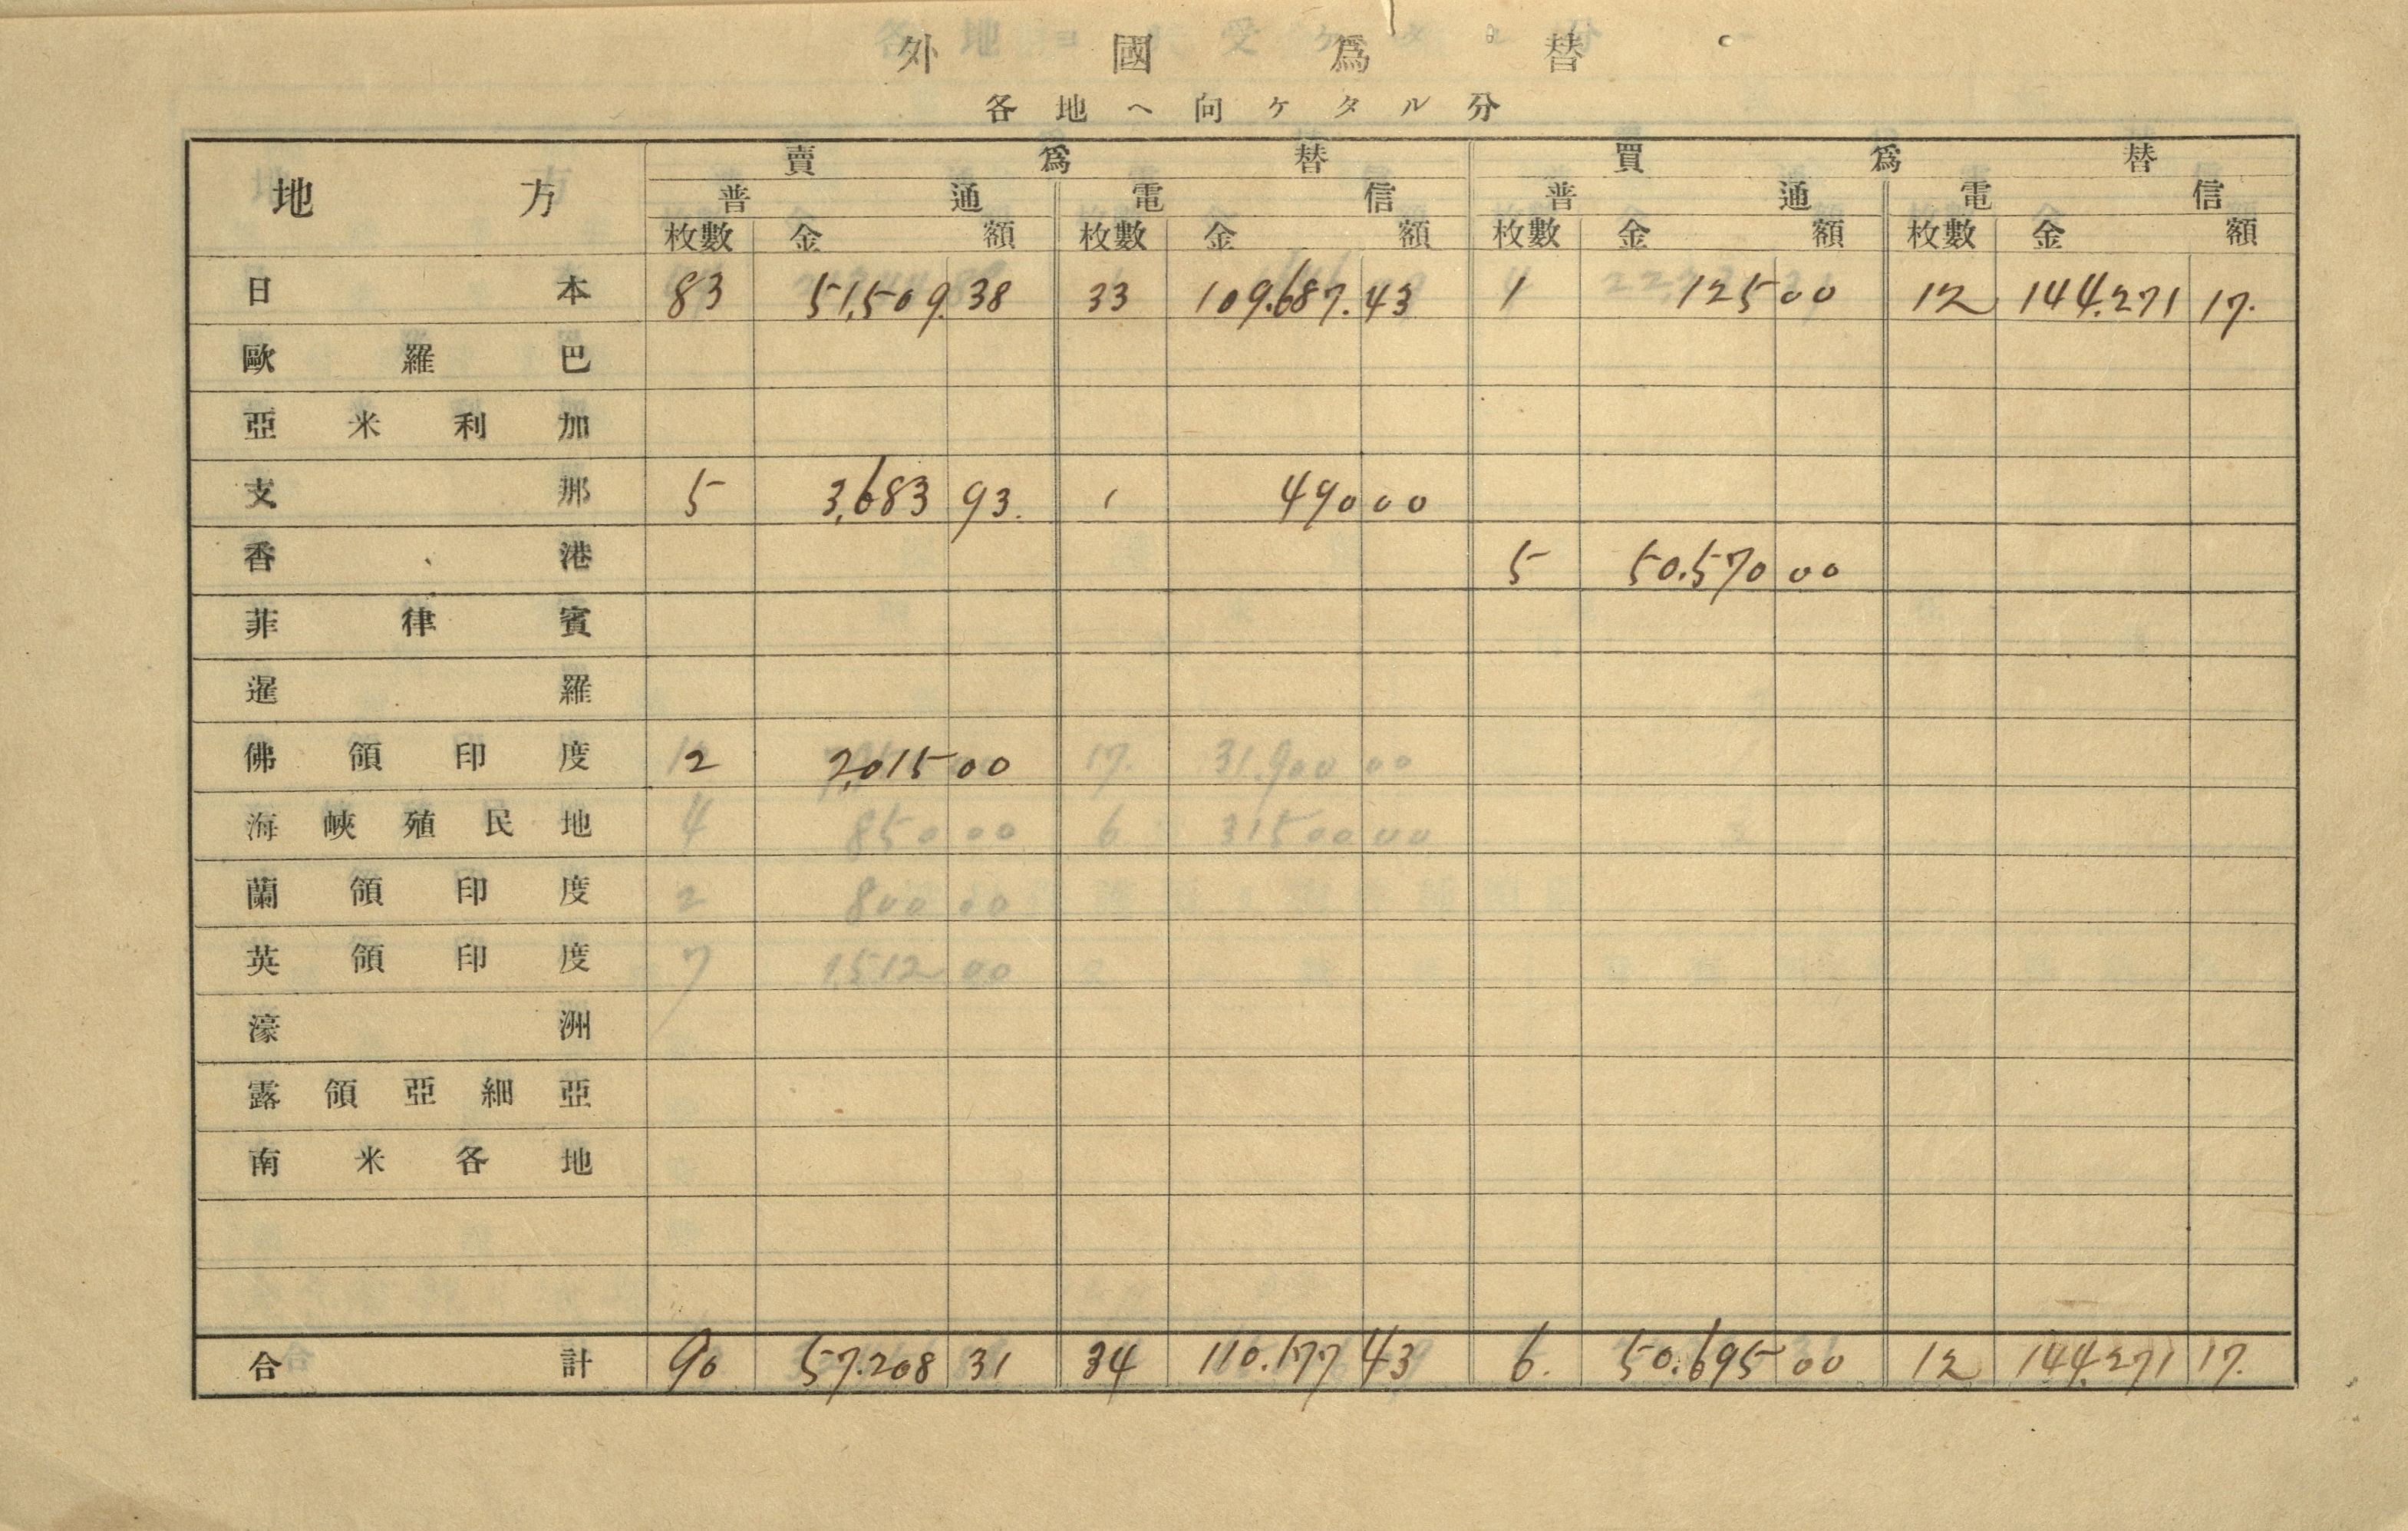 外國爲替
各地ヘ向ケタル分
地方 賣爲替 買爲替
普通 電信 普通 電信
枚數 金額 枚數 金額 枚數 金額 枚數 金額
日本 83 51,509.38 33 109.687.43 1 125 00 12 144.271 17.
歐羅巴
亞米利加
支那 5 3,683 93. 1 490 00
香港 5 50.570 00
菲律賓
暹羅
佛領印度 2 2,015 00
海峽殖民地
蘭領印度
英領印度
濠洲
露領亞細亞
南米各地
合計 90 57.208 31 34 110.177 43 6. 50.695 00 12 144.271 17.